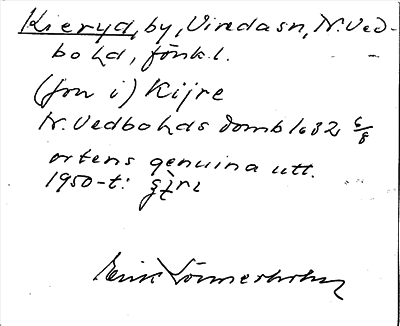 Kieryd, by, Viredasn, N. Ved-
bo hd, Jönk.l.
(från i) Kijre
N. Vedbohds domb 1632 6/8
ortens genuina utt.
1950-t:
Erik Lönnerholm